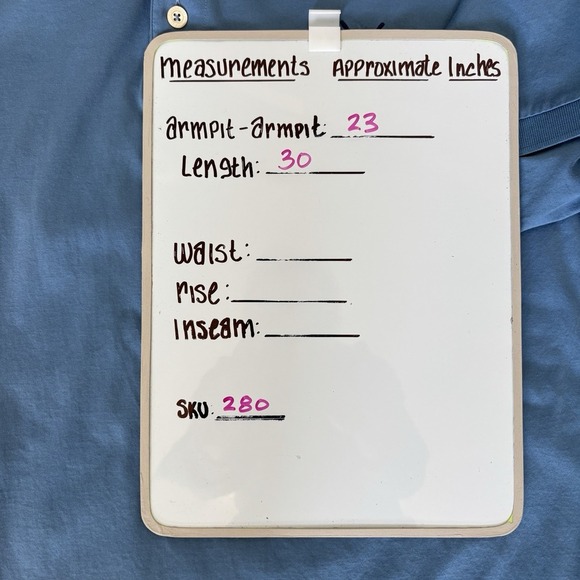 Measurements Approximate Inches
armpit-armpit: 23
Length: 30
waist:
rise:
Inseam:
SKU: 280